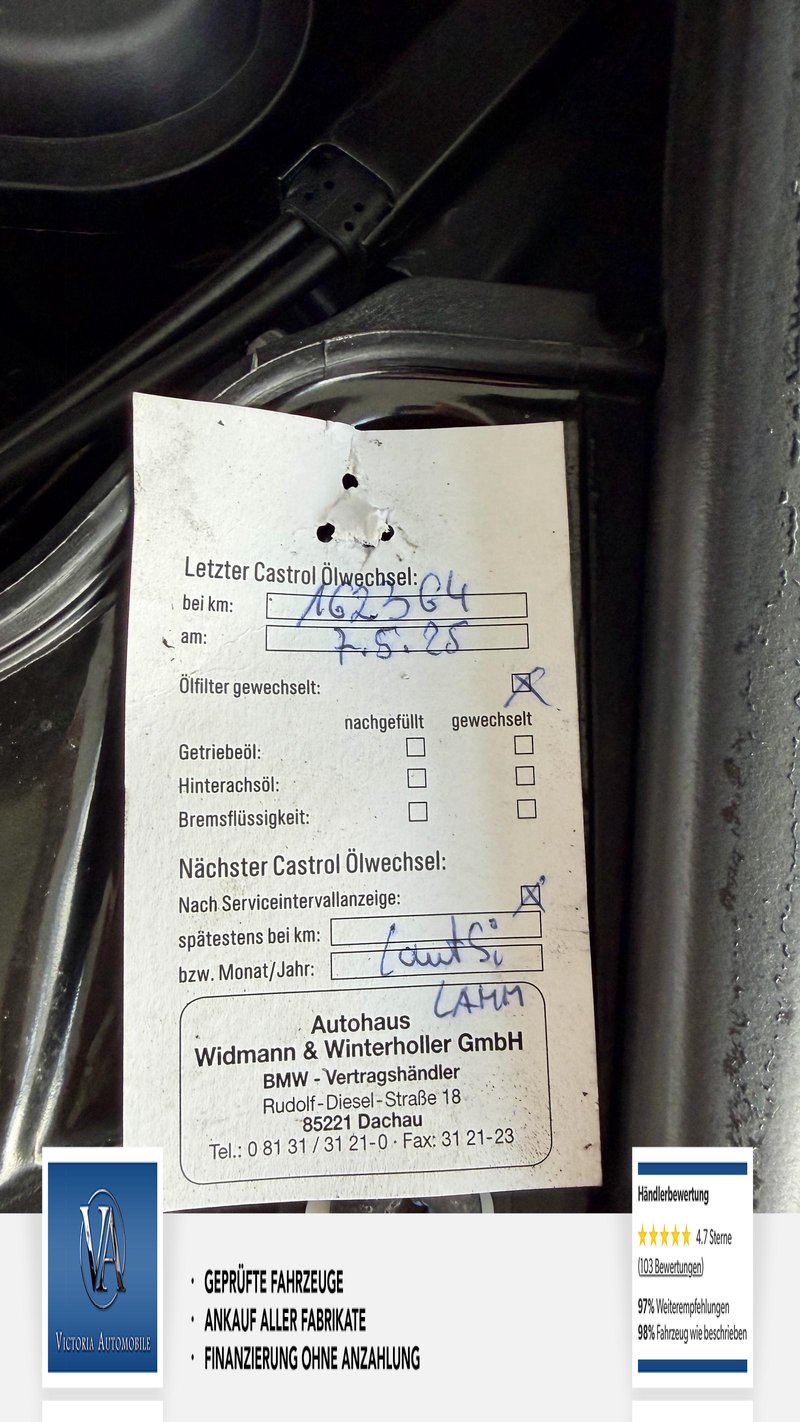 Letzter Castrol Ölwechsel:
bei km: 162564
am: 7.5.25
Ölfilter gewechselt:
nachgefüllt gewechselt
Getriebeöl:
Hinterachsöl:
Bremsflüssigkeit:
Nächster Castrol Ölwechsel:
Nach Serviceintervallanzeige:
spätestens bei km:
bzw. Monat/Jahr: Laut Si
LAMM
Autohaus
Widmann & Winterholler GmbH
BMW - Vertragshändler
Rudolf-Diesel-Straße 18
85221 Dachau
Tel.: 0 81 31 / 31 21-0 · Fax: 31 21-23
VA
VICTORIA AUTOMOBILE
· GEPRÜFTE FAHRZEUGE
· ANKAUF ALLER FABRIKATE
· FINANZIERUNG OHNE ANZAHLUNG
Händlerbewertung
4.7 Sterne
(103 Bewertungen)
97% Weiterempfehlungen
98% Fahrzeug wie beschrieben